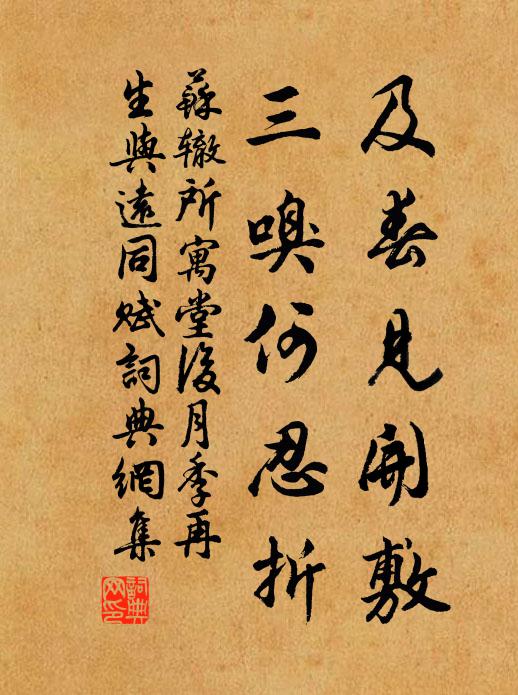 及春見開敷
三嗅何忍折
蘇辙所寓堂後月季再
生與遠同賦詞典網集
詞典网印